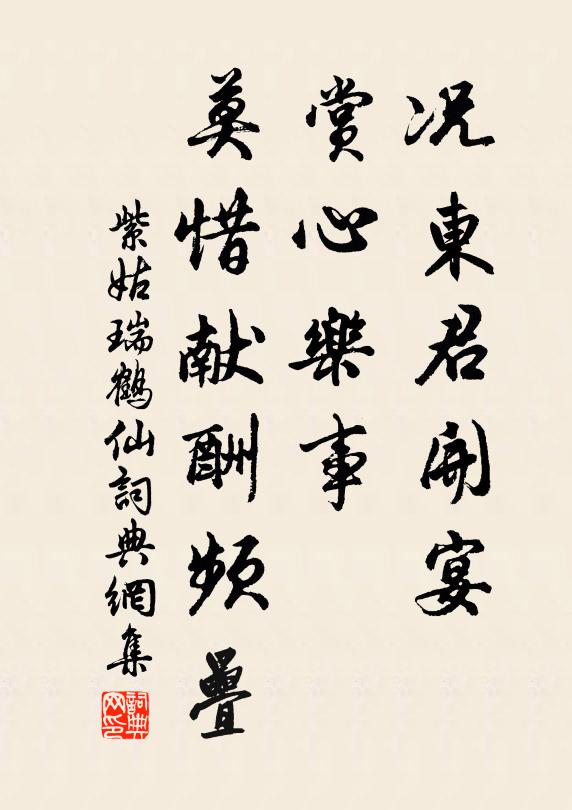 况東君開宴
賞心樂事
莫惜献酬頻疊
紫姑瑞鶴仙詞典網集
詞典網印